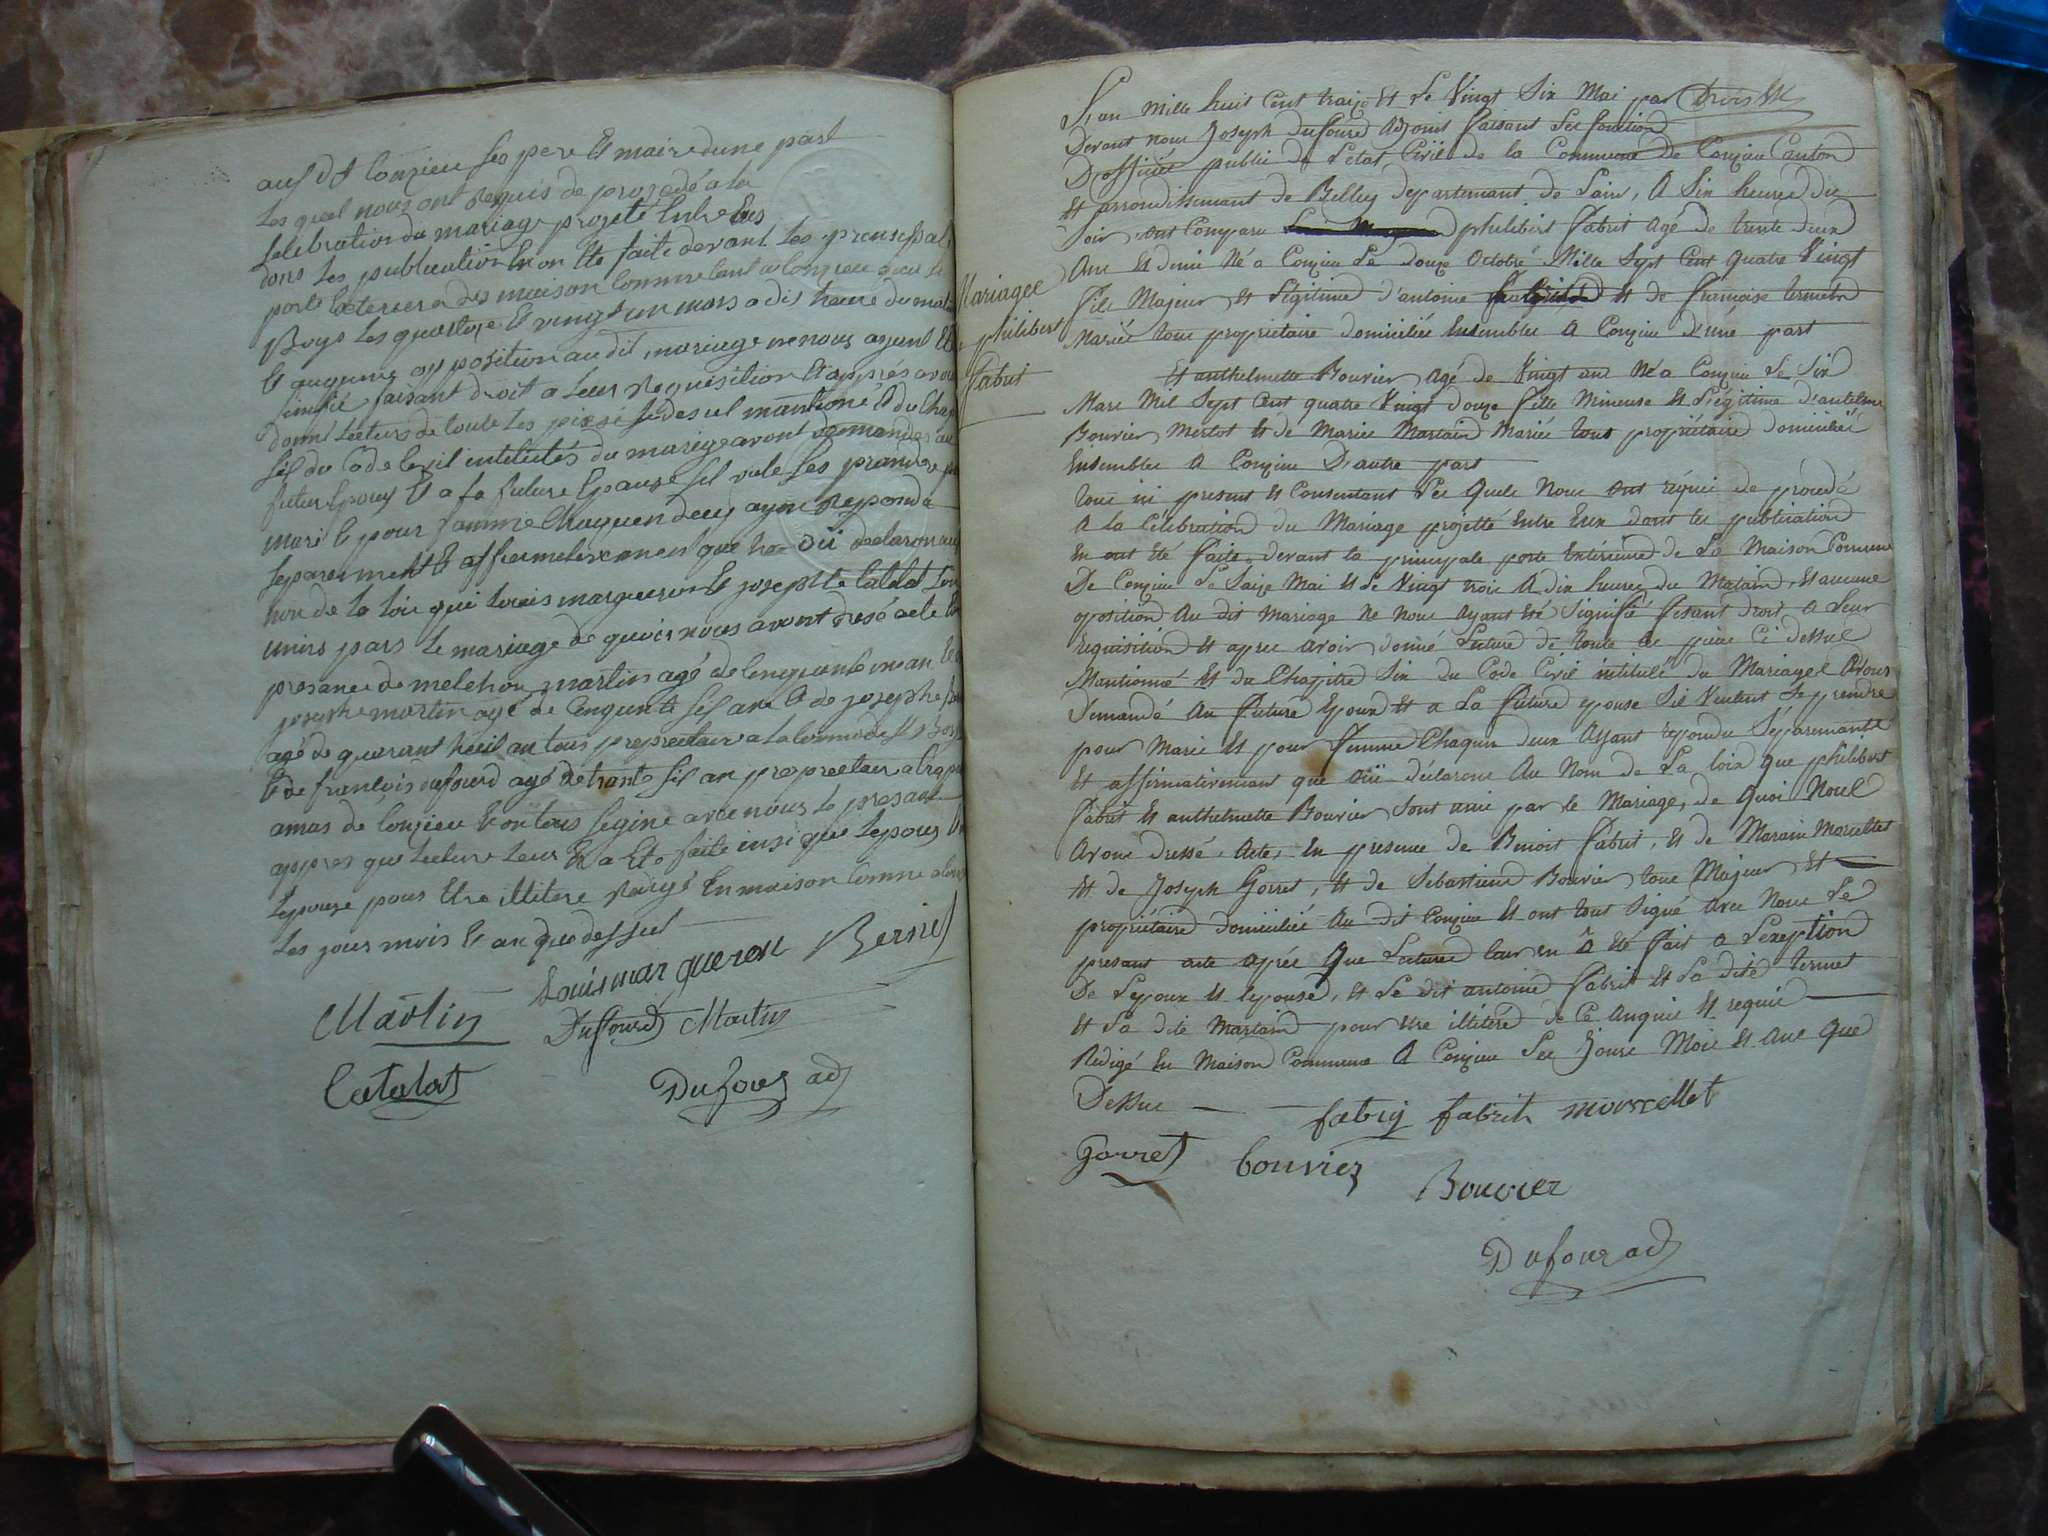 aus dt Conzieu ses pere et maire dune part
Les quel nous ont Requis de prozedé a la
Selebration du mariage projeté Entre Eus
dons Les publication En on Ete faite devant Les prensipal
porte Exterieur des maison Commune tant a Conzieu que
Boys Les quatorze Et vingt un mars a dis heure du matin
Et auquune opposition au dit mariage ne nous ayant Eté
sinifié faisant droit a Leur Requisition Et apprés avoir
donné Lecture de toute Les piesse si desul mantioné Et du Chap
sis du Code Cevil intitulés du mariage avont demander au
futur Epoux Et a la future Epouse sil vule ses prandre pour
mari Et pour famme Chaquen deus ayan Reponda
separement Et affirmativemen que oüi declaron au
non de la Loi que Louis marqueron Et josephte Catalat Son
unis pars Le mariage de quoi nous avont dresé acte En
presance de melchon martin agé de Cinquante un an Et
joseph martin agé de Cinquante sis an Et de josephe
agé de quarant huit an tous propreetair a la Comune de St Boys
Et de francois dufourd agé de trante sis an propreetair a
amas de Conzieu Et on tous segine avec nous Le presant
appres que Lecture Leur En a Eté faite insi que Lepous
Lepouze pour Etre illitere Redigé En maison Comne a
Les jour mois Et an que dessus
Louis marqueron Bernet
Martin Duffourd Martin
Catalat Dufour adj
Mariagee
philibert
fabrit
L'an mille huit Cent traize Et Le Vingt Six Mai par Devant
Devant nous Joseph dufoured Adjoint faisant Les fonction
D'officiee public de L'etat Civil de la Commune de Conzieu Canton
Et arrondissement de Belley departemant de Lain, A Six heures du
Soir, ont Comparu philibert fabrit Agé de trente deux
Ans Et demi Né a Conzieu Le douze Octobre Mille Sept Cent quatre Vingt
fils Majeur Et Légitime d'antoine fabrit Et de francoise termet
Mariée tous proprietaire domiciliée Ensembles A Conzieu d'une part
Et anthelmette Bouvier, Agé de Vingt ans Né a Conzieu Le Six
Mars Mil Sept Cent quatre Vingt douze fille Mineuse Et Légitime d'antelme
Bouvier Mertot Et de Mariee Martaind Mariée tous propriétaire domiciliée
Ensembles A Conzieu D'autre part
tous ici present Et Consentant Les Quels Nous ont réquis de procedé
A La Célébration du Mariage projetté Entre Eux dont les publication
En ont été faite devant la principale porte Extérieure de La Maison Commune
De Conzieu Le Saize Mai Et Le Vingt trois A dix heures du Matain, Et aucune
oposition Au dit Mariage Ne Nous Ayant été Signifié fesant droit a Leur
réquisition Et apres avoir donné Lecture de toute les pieces Ci dessus
Mantionné Et du Chapitre Six du Code Civil intitulé du Mariagee Avons
Demandé Au future Epoux Et a La future epouse Sil Veulent Se prendre
pour Marie Et pour femme Chaqun deux Ayant repondu Séparemante
Et affirmativemant que oüi déclarons Au Nom de La loix que philibert
fabrit Et anthelmette Bouvier Sont unie par le Mariage, de Quoi Nous
Avons dressé, Acte, En presence de Benoit fabrit, Et de Marain Marcellet
Et de Joseph Gorret, Et de Sébastiend Bouvier tous Majeur Et
propriétaire domiciliée Au dit Conzieu Et ont tous Signé avec Nous Le
presant acte aprée Que Lecture leur en A été fait a L'exeption
De Lepoux Et lepouse, Et Le dit antoine fabrit Et La dite termet
Et La dite Martaind pour etre illitéré de Ce Anquis Et requis
Redigé En Maison Commune A Conzieu Les Jours Mois Et Ans Que
Dessus fabrij fabrit morscellet
Gorret bouvier
Bouvier
Dufour adj